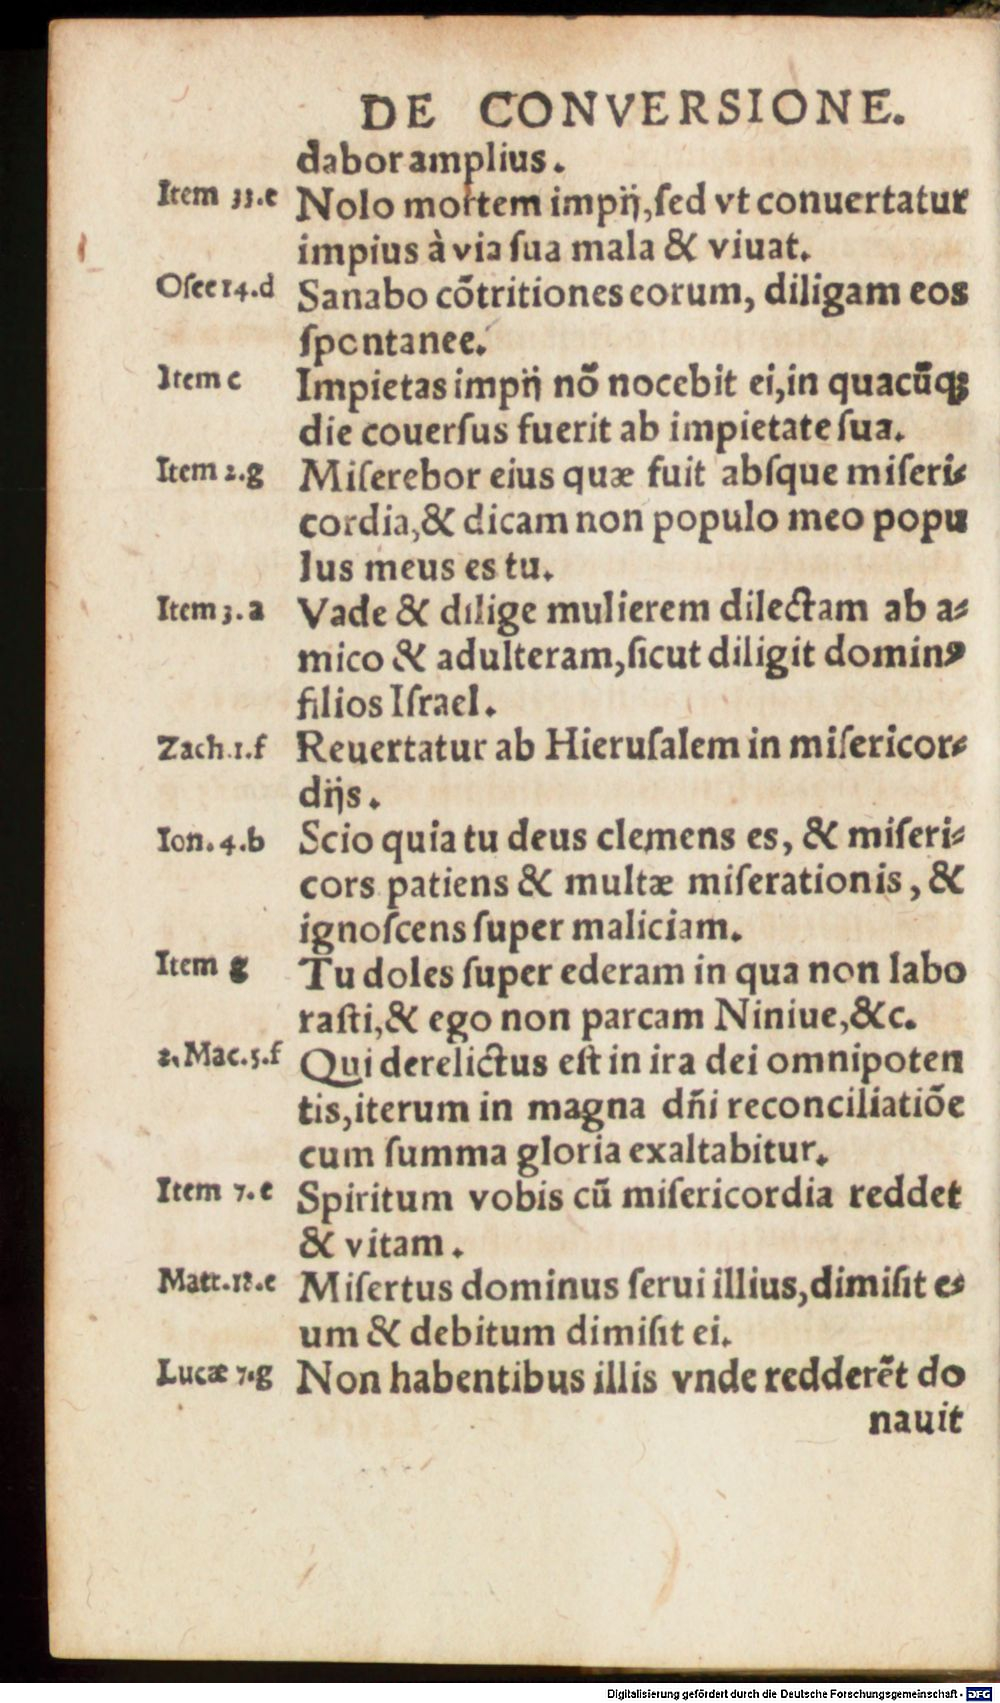 DE CONVERSIONE.
dabor amplius.
Item 33.e Nolo mortem impij,ſed vt conuertatur
impius à via ſua mala & viuat.
Oſee 14.d Sanabo cõtritiones eorum, diligam eos
ſpontanee.
Item c Impietas impij nõ nocebit ei,in quacũq;
die couerſus fuerit ab impietate ſua.
Item 2.g Miſerebor eius quæ fuit abſque miſeri⸗
cordia,& dicam non populo meo popu
lus meus es tu.
Item 3.a Vade & dilige mulierem dilectam ab a⸗
mico & adulteram,ſicut diligit dominꝰ
filios Iſrael.
Zach.1.f Reuertatur ab Hieruſalem in miſericor⸗
dijs.
Ion.4.b Scio quia tu deus clemens es, & miſeri⸗
cors patiens & multæ miſerationis, &
ignoſcens ſuper maliciam.
Item g Tu doles ſuper ederam in qua non labo
raſti,& ego non parcam Niniue,&c.
2.Mac.5.f Qui derelictus eſt in ira dei omnipoten
tis,iterum in magna dñi reconciliatiõe
cum ſumma gloria exaltabitur.
Item 7.e Spiritum vobis cũ miſericordia reddet
& vitam.
Matt.18.e Miſertus dominus ſerui illius,dimiſit e⸗
um & debitum dimiſit ei.
Lucæ 7.g Non habentibus illis vnde redderẽt do
nauit
Digitalisierung gefördert durch die Deutsche Forschungsgemeinschaft - DFG